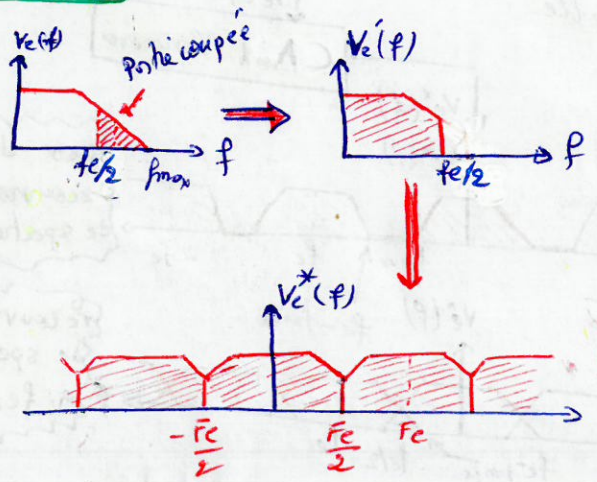 Ve(f)
Partie coupée
fe/2
fmax
f
Ve'(f)
fe/2
f
Ve*(f)
-Fe/2
Fe/2
Fe